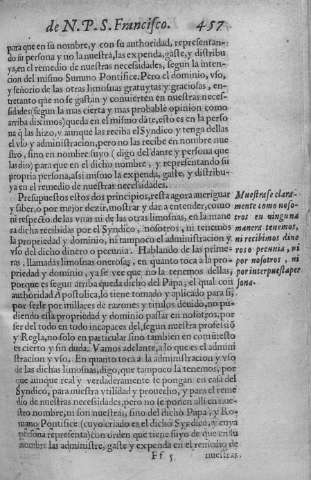 de N. P. S. Francisco. 457
para que en su nombre, y con su authoridad, representan-
do su persona y no la nuestra, las expenda, gaste, y distribu
ya, en el remedio de nuestras necessidades, segun la inten-
cion del mismo Summo Pontifice. Pero el dominio, vso,
y señorio de las otras limosnas gratuytas y graciosas, en-
tretanto que no se gastan y conuierten en nuestras neces-
sidades (segun la mas cierta y mas probable opinion como
arriba diximos) queda en el mismo dãte, esto es en la perso
na q̃ las hizo, y aunque las reciba el Syndico y tenga dellas
el vso y administracion, pero no las recibe en nombre nue
stro, sino en nombre suyo (digo del dante y persona que
las dio) para que en el dicho nombre, y representando su
propria persona, assi mismo la expenda, gaste, y distribu-
ya en el remedio de nuestras necessidades.
Presupuestos estos dos principios, resta agora aueriguar
y saber, o por mejor dezir, mostrar y dar a entender, como
ni respecto de las vnas ni de las otras limosnas, en la mane
ra dicha recibidas por el Syndico, nosotros, tenemos
la propriedad y dominio, ni tampoco el administracion y
vso del dicho dinero o pecunia. Hablando de las prime-
ras, llamadas limosnas onerosas, en quanto toca a la pro-
priedad y dominio, ya se vee que no la tenemos dellas,
porque es segun arriba queda dicho del Papa, el qual con
authoridad Apostolica, lo tiene tomado y aplicado para si,
por serle por millares de razones y titulos deuido, no pu-
diendo essa propriedad y dominio passar en nosotros, por
ser del todo en todo incapaces del, segun nuestra professiõ
y Regla, no solo en particular sino tambien en comũ, esto
es cierto y sin duda. Vamos adelante, a lo que es el admini
stracion y vso. En quanto toca a la administracion y vso
de las dichas limosnas, digo, que tampoco la tenemos, por
que aunque real y verdaderamente se pongan en casa del
Syndico, para nuestra vtilidad y prouecho, y para el reme
dio de nuestras necessidades, pero no se ponen alli en nue-
stro nombre, ni son nuestras, sino del dicho Papa, y Ro-
mano Pontifice (cuyo criado es el dicho Syndico, y cuya
persona representa) con orden que tiene suyo de que en su
nombre las administre, gaste y expenda en el remedio de
Ff 5 nuestras
Muestrase clara-
mente como noso-
tros en ninguna
manera tenemos,
ni recibimos dine
ro o pecunia, ni
por nosotros, ni
por interpuesta per
sona.